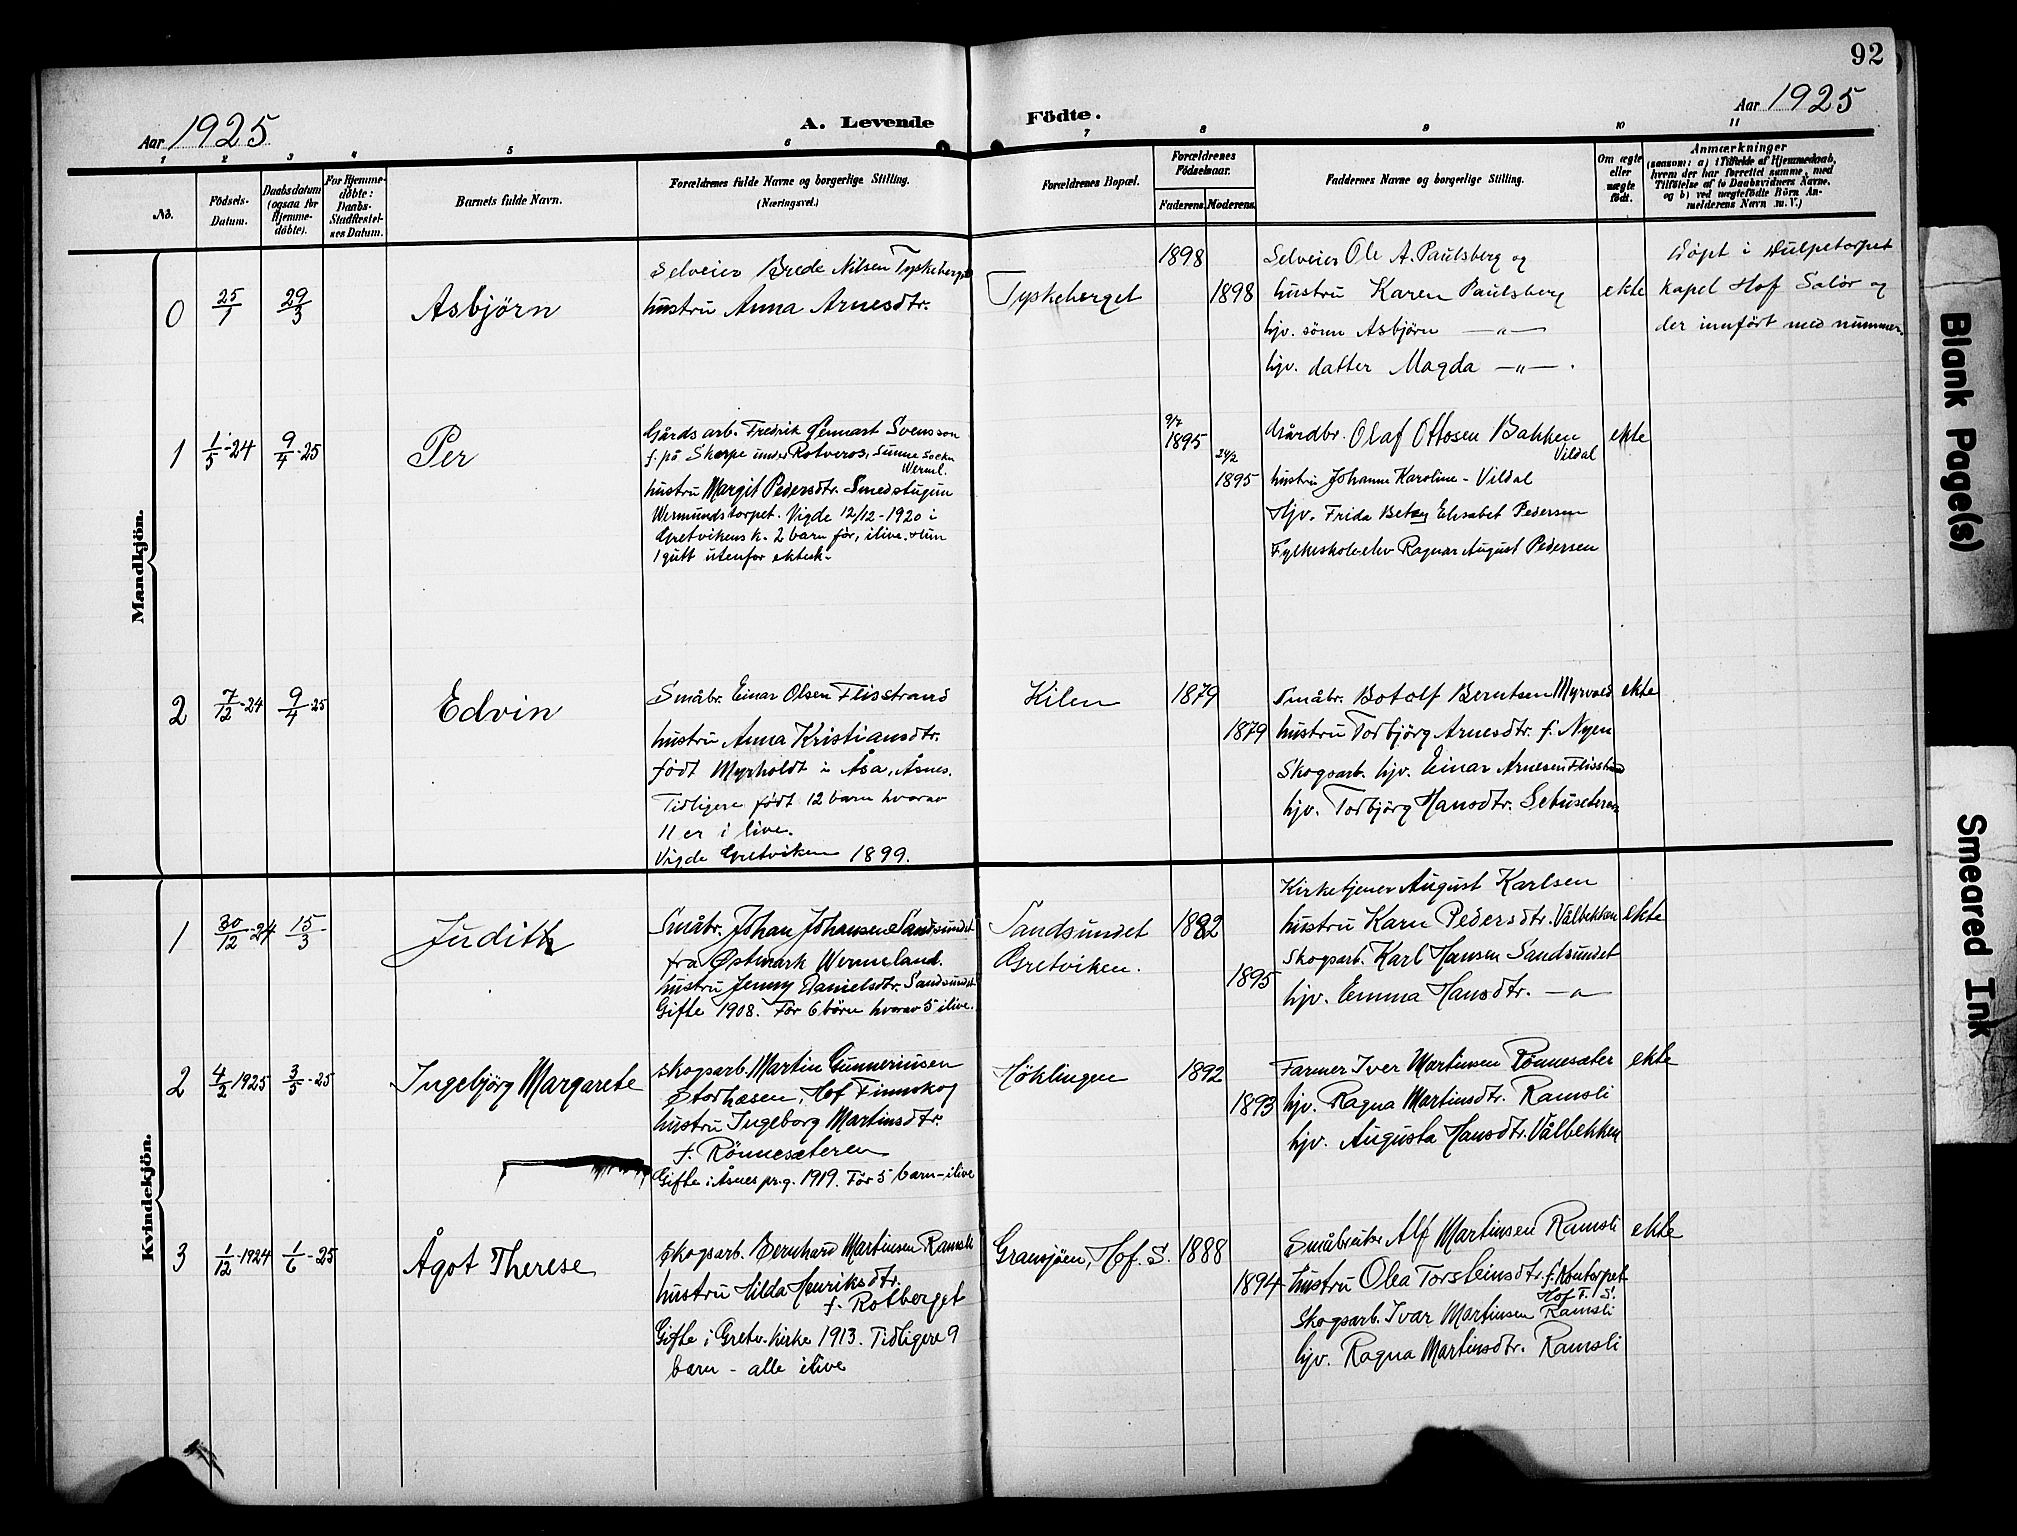 92
Aar 1925
A. Levende Födte.
Aar 1925
1 2 3 4 5 6 7 8 9 10 11
No.
Födsels-Datum.
Daabsdatum (ogsaa for Hjemme-döbte).
For Hjemme-döbte: Daabs-Stadfæstel-ses Datum.
Barnets fulde Navn.
Forældrenes fulde Navne og borgerlige Stilling. (Næringsvei.)
Forældrenes Bopæl.
Forældrenes Födselsaar.
Faderens. Moderens.
Faddernes Navne og borgerlige Stilling.
Om ægte eller uægte födt.
Anmærkninger
(saasom: a) i Tilfælde af Hjemmedaab, hvem der har forrettet samme, med Tilföielse af to Daabsvidners Navne, og b) ved uægtefödte Börn An-melderens Navn m. V.)
Mandkjön.
0 25/1 29/3 Asbjörn
Selveier Brede Nilsen Tyskeberget
hustru Anna Arnesdtr.
Tyskeberget
1898
1898
Selveier Ole A. Paulsberg og
hustru Karen Paulsberg
hjv. sönn Asbjörn —"—
hjv. datter Magda —"—.
ekte
Döpt i Dulpetorpet
kapel Hof Solör og
der innført med nummer.
1 1/5-24 9/4-25 Per
Gårdsarb. Fredrik Gennart Svensson
f. på Skarpe under Rotveros, Sunne socken
Werml.
hustru Margit Pedersdtr. Smedstugun
Wermundstorpet. Vigde 12/12-1920 i
Gretvikens k. 2 barn før, ilive. Hun
1 gutt utenfor ektesk.
9/7
1895
24/2
1895
Gårdbr. Olaf Ottosen Bakken
Vildal
hustru Johanne Karoline - Vildal
Hjv. Frida Betzy Elisabet Pedersen
Fylkeskoleelev Ragnar August Pedersen
ekte
2 7/12-24 9/4-25 Edvin
Småbr. Einar Olsen Flisstrand
hustru Anna Kristiansdtr.
født Myrholdt i Åsa, Åsnes.
Tidligere født 12 barn hvorav
11 er i live.
Vigde Gretviken 1899.
Kilen
1879
1879
Småbr. Botolf Berntsen Myrvold
hustru Torbjörg Arnesdtr. f. Nyen
Skogsarb. hjv. Einar Arnesen Flisstrand
hjv. Torbjörg Hansdtr. Setuseteren
ekte
Kvindekjön.
1 30/12-24 15/3 Judith
Småbr. Johan Johansen Sandsundet
fra Østmark Wermeland.
hustru Jenny Danielsdtr. Sandsundet
Gifte 1908. Før 6 börn hvorav 5 ilive.
Sandsundet
Gretviken.
1882
1895
Kirketjener August Karlsen
hustru Karn Pedersdtr. Vålbekken
Skogsarb. Karl Hansen Sandsundet
hjv. Emma Hansdtr. —"—
ekte
2 4/2-1925 3/5-25 Ingebjörg Margarete
Skogsarb. Martin Gunneriusen
Storhaesen, Hof Finnskog
hustru Ingeborg Martinsdtr.
f. Rönnesæteren
Gifte i Åsnes pr.g. 1919. Før 5 barn - ilive
Höklingen
1892
1893
Farmer Iver Martinsen Rönnesæter
hjv. Ragna Martinsdtr. Ramsli
hjv. Augusta Hansdtr. Vålbekken
ekte
3 1/12-1924 1/6-25 Ågot Therese
Skogsarb. Bernhard Martinsen Ramsli
hustru Hilda Henriksdtr.
f. Rotberget
Gifte i Gretv. kirke 1913. Tidligere 9
barn - alle ilive
Gransjöen, Hof. S.
1888
1894
Småbruker Alf Martinsen Ramsli
hustru Olea Torsteinsdtr. f. Kontorpet
Hof F. S.
Skogsarb. Ivar Martinsen Ramsli
hjv. Ragna Martinsdtr. Ramsli
ekte
Blank Page(s)
Smeared Ink